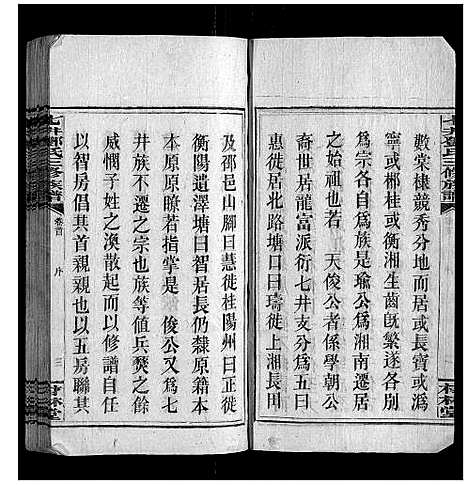 數棠棣競秀分地而居或長寶或溈
寧或郴桂或衡湘生齒旣繁遂各別
爲宗各自爲族是瑜公爲湘南遷居
之始祖也若　天俊公者係學朝公
裔世居龍富派衍七井支五曰
惠徙居北路塘口曰璹徙上湘長田
及邵邑山腳曰慧徙桂陽州曰正徙
衡陽遣澤塘曰智居長仍隸原籍本
本原原瞭若指掌是　俊公又爲七
井族不遷之宗也族等值兵燹之餘
咸憫子姓之渙散起而以修譜自任
以智房倡其首親親也以五房聯其
七井鄧氏三修族譜
卷首
序
三